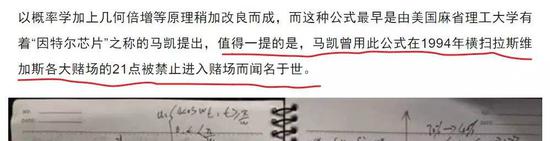 以概率学加上几何倍增等原理稍加改良而成，而这种公式最早是由美国麻省理工大学有
着“因特尔芯片”之称的马凯提出，值得一提的是，马凯曾用此公式在1994年横扫拉斯维
加斯各大赌场的21点被禁止进入赌场而闻名于世。
NO:
DATE: